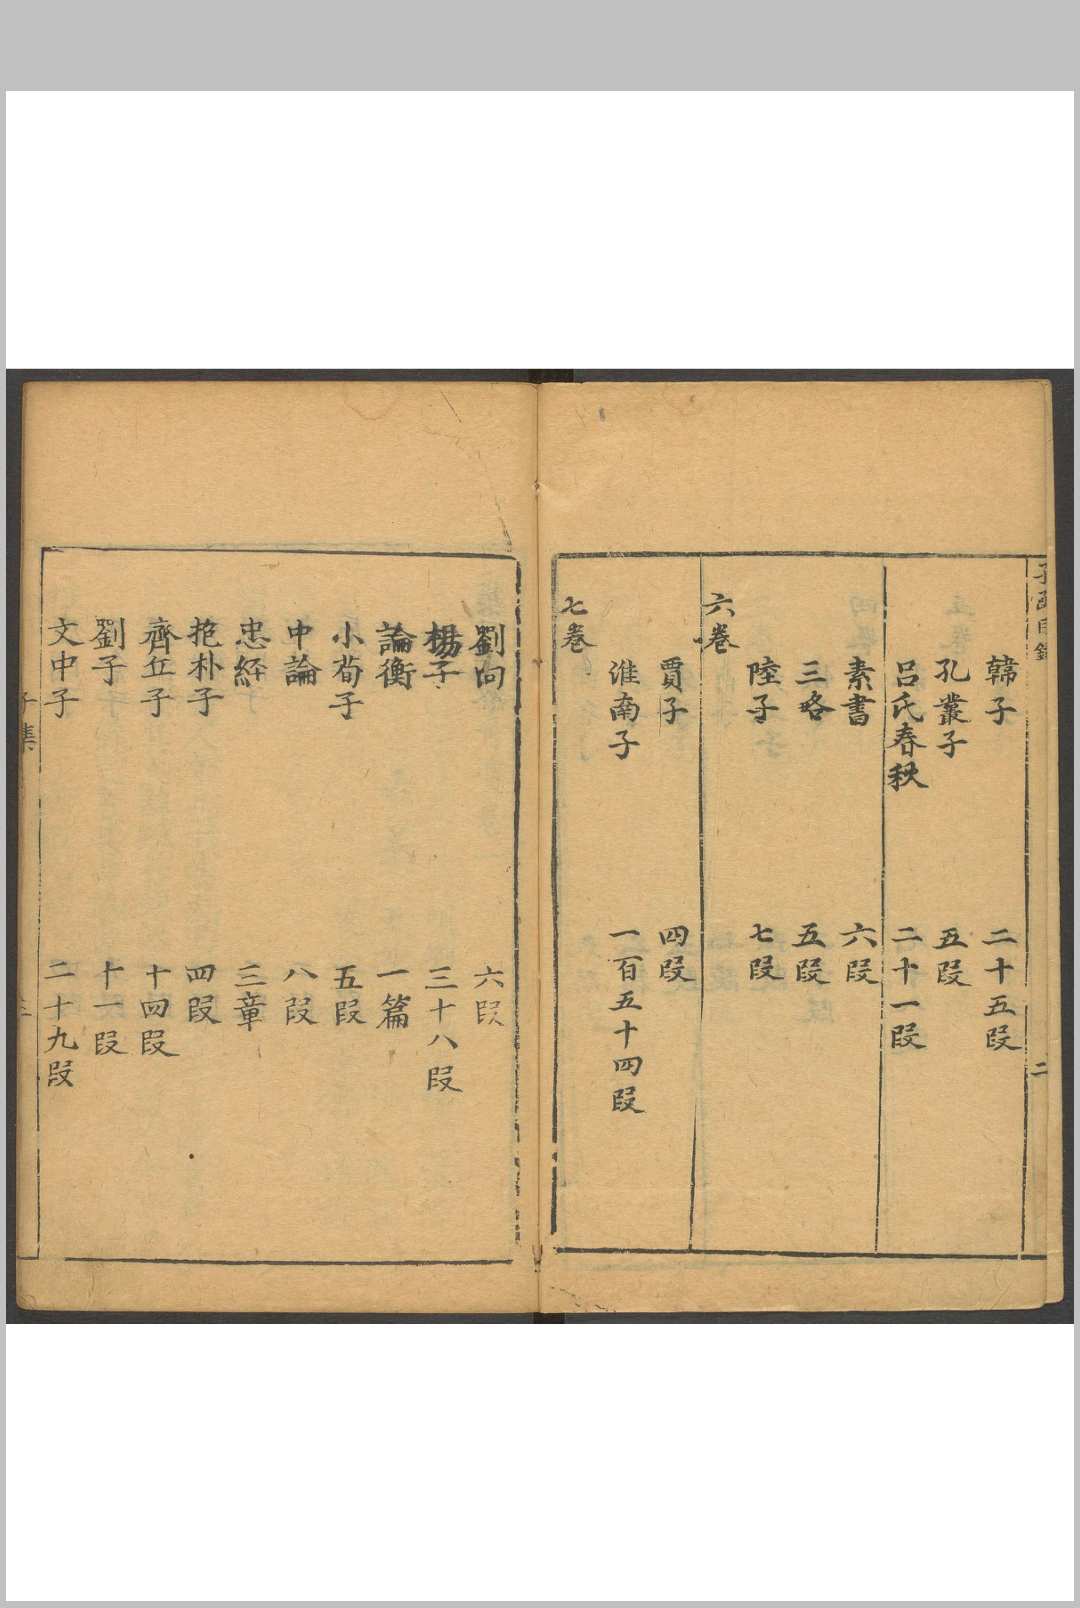 韓子 二十五段
孔叢子 五段
呂氏春秋 二十一段
素書 六段
三略 五段
陸子 七段
六卷
賈子 四段
淮南子 一百五十四段
七卷
劉向 六段
楊子 三十八段
論衡 一篇
小荀子 五段
中論 八段
忠經 三章
抱朴子 四段
齊丘子 十四段
劉子 十一段
文中子 二十九段